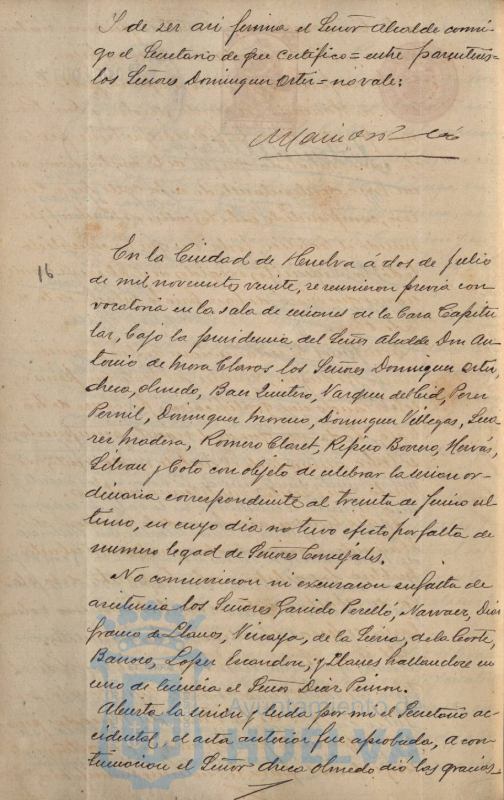 Y de ser asi firma el Señor Alcalde conmi-
go el Secretario de que certifico = entre parentesis =
los Señores Dominguez Ortiz = no vale;
16
En la Ciudad de Huelva á dos de Julio
de mil novecientos veinte, se reunieron previa con
vocatoria en la sala de sesiones de la Casa Capitu
lar, bajo la presidencia del Señor Alcalde Don An
tonio de Mora Claros los Señores Dominguez Ortiz,
Checa, Olmedo, Baez Quintero, Vazquez del Cid, Perez
Pernil, Dominguez Moreno, Dominguez Villegas, Sua
rez Madera, Romero Claret, Repiso Borrero, Hervás,
y Coto con objeto de celebrar la sesion or
dinaria correspondiente al treinta de Junio ul-
timo, en cuyo dia no tuvo efecto por falta de
numero legal de Señores Concejales.
No comunicaron ni excusaron su falta de
asistencia los Señores Garrido Perelló, Narvaez, Diaz
Franco de Llanos, Vizcaya, de la Sierra, de la Corte,
Barroso, Lopez Escandon, y Llanes hallandose en
uso de licencia el Señor Diaz
Abierta la sesión y leida por mi el Secretario ac-
cidental, el acta anterior fue aprobada, a con-
tinuacion el Señor Checa Olmedo dió las gracias
Ayuntamiento de
HUELVA